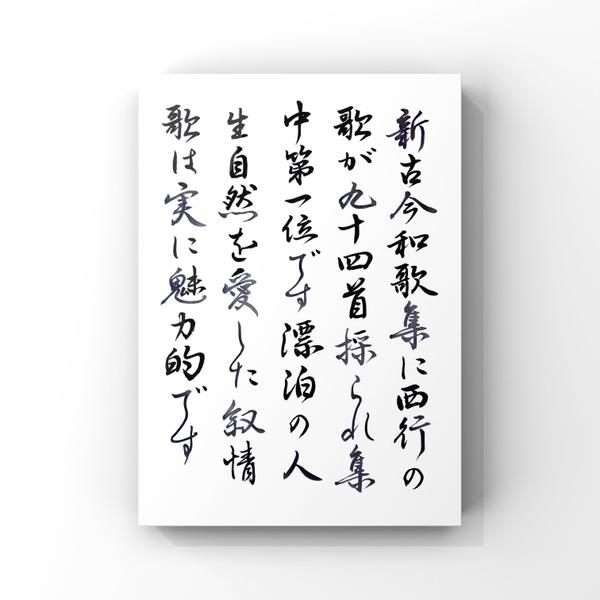 新古今和歌集に西行の
歌が九十四首採られ集
中第一位です漂泊の人
生自然を愛した叙情
歌は実に魅力的です